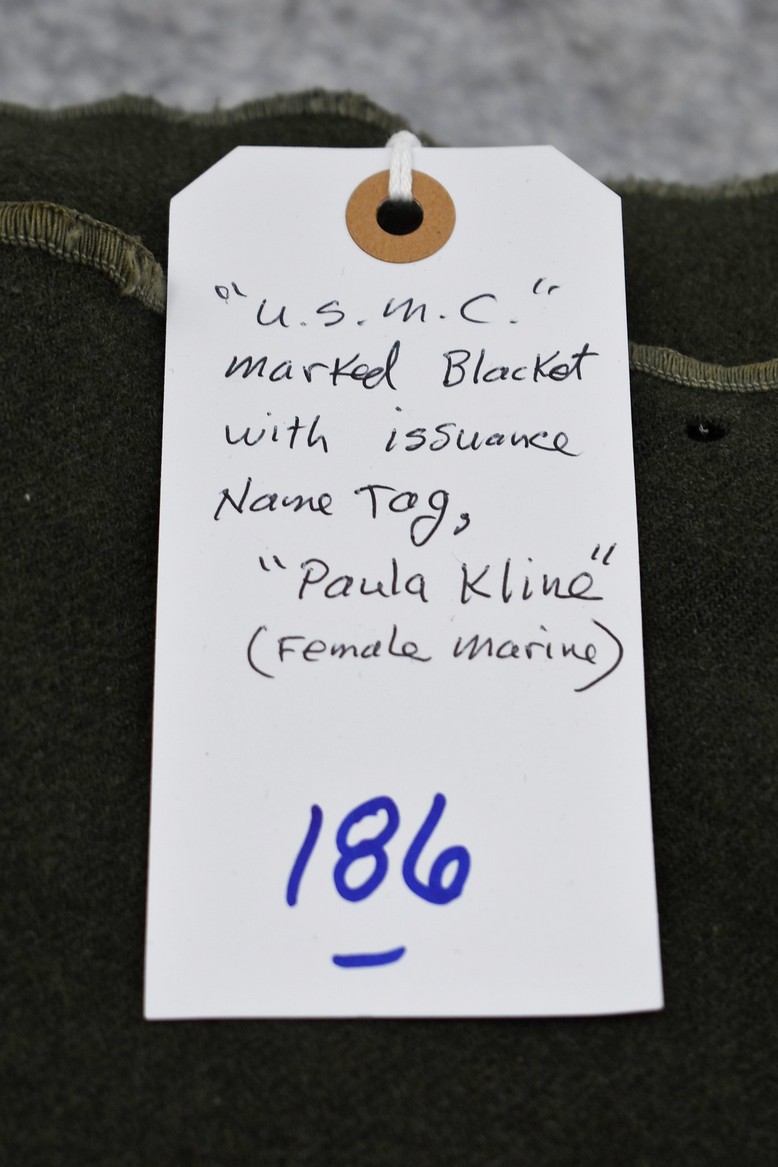 "U.S.M.C."
marked Blacket
with issuance
Name Tag,
"Paula Kline"
(Female Marine)
186